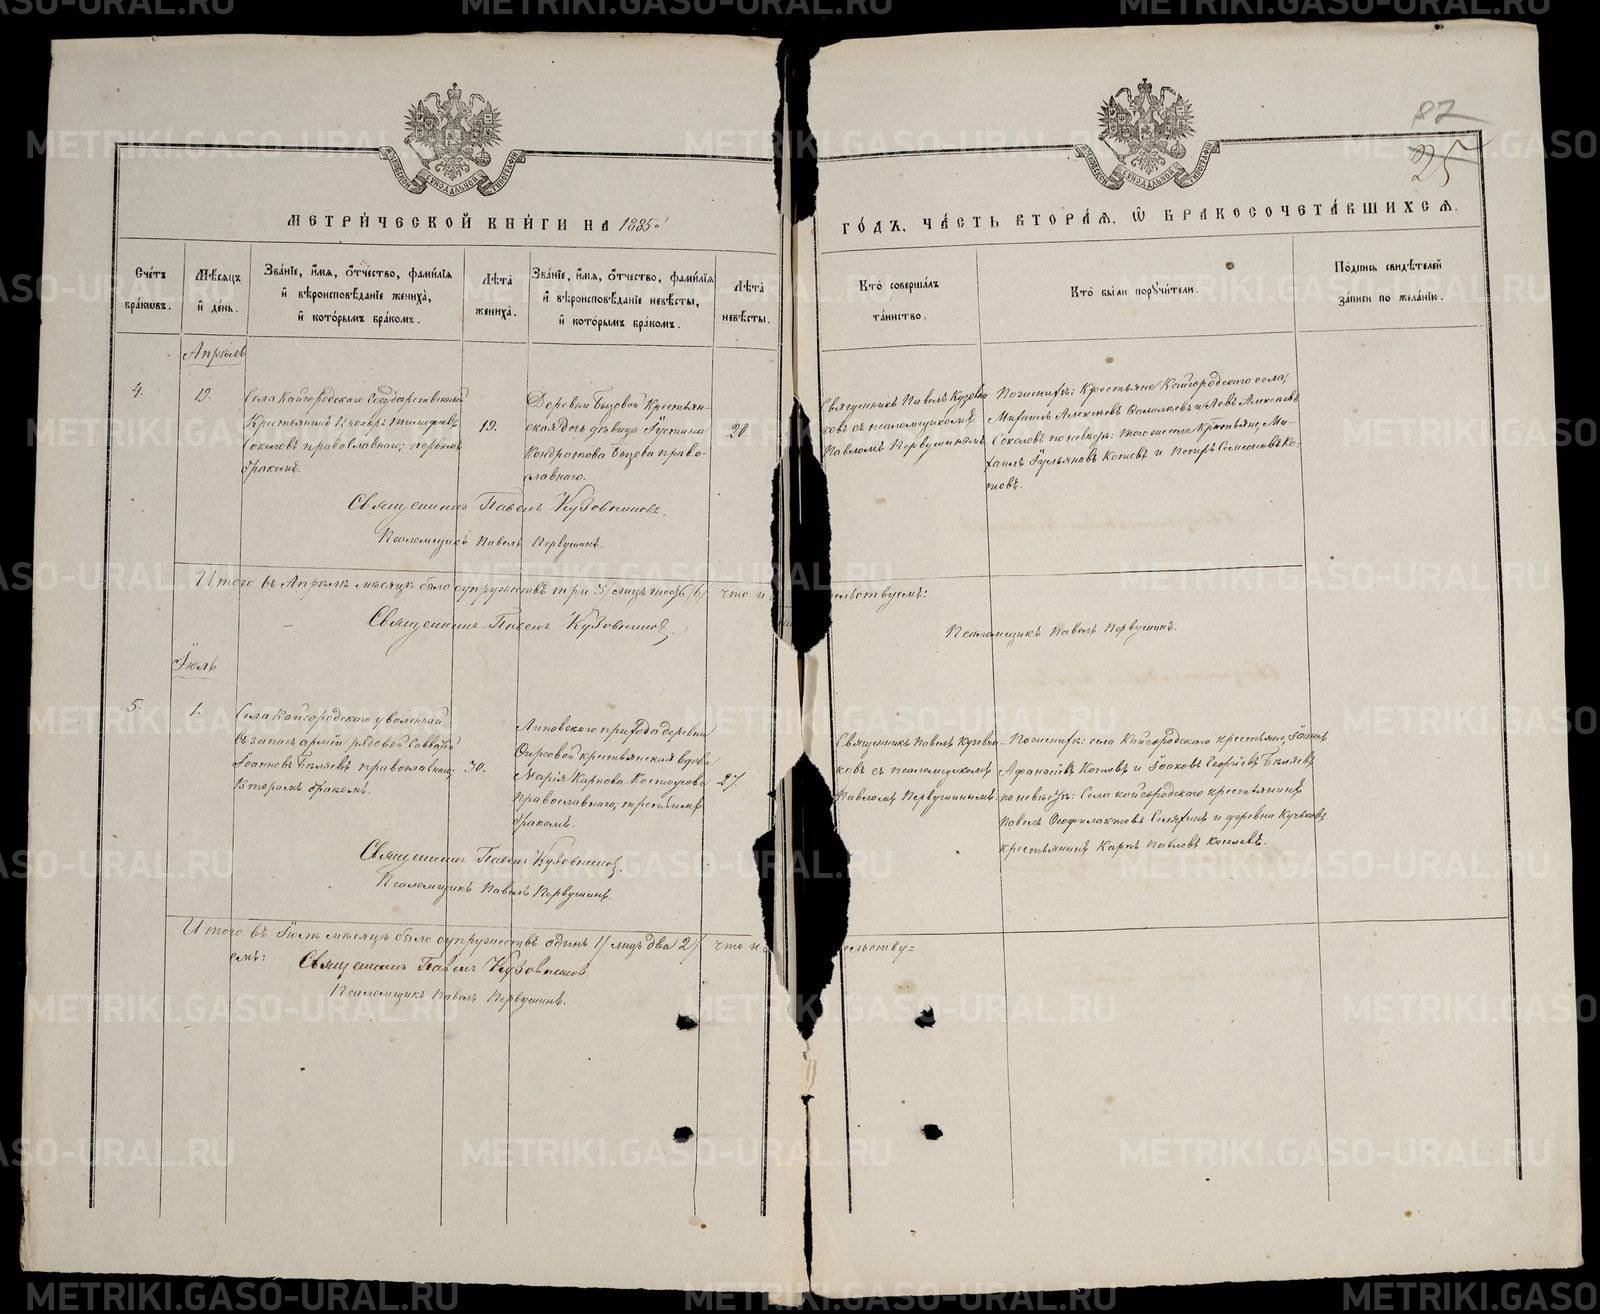 87
25
МЕТРИ́ЧЕСКОЙ КНИ́ГИ НА 1885й
ГО́ДЪ, ЧА́СТЬ ВТОРА́Я, Ѡ҆ БРАКОСОЧЕТА́ВШИХСЯ.
Сче́тъ
бра́ковъ.
Мѣ́сяцъ
и҆ де́нь.
Зва́нїе, и҆́мя, ѻ҆́тчество, фами́лїя
и҆ вѣроисповѣ́данїе жениха̀,
и҆ кото́рымъ бра́комъ.
Лѣ́та
жениха̀.
Зва́нїе, и҆́мя, ѻ҆́тчество, фами́лїя
и҆ вѣроисповѣ́данїе невѣ́сты,
и҆ кото́рымъ бра́комъ.
Лѣ́та
невѣ́сты.
Кто̀ соверша́лъ
та́инство.
Кто̀ бы́ли порꙋчи́тели.
По́дпись свидѣ́телей
за́писи по жела́нїю.
Апрѣль
4.
19.
Села Кайгородскаго Государственный
Крестьянинъ Прохоръ Тимофѣевъ
Соколовъ православнаго; первымъ
бракомъ.
19.
Деревни Бызовой Крестьян-
ская дочь дѣвица Іустина
Кондратова Бызова право-
славнаго.
20.
Священникъ Павелъ Кузовни-
ковъ съ псаломщикомъ
Павломъ Первушинымъ
По женихѣ: Крестьяне Кайгородскаго села,
Михаилъ Алексѣевъ и Левъ Алексѣевъ
Соколовъ по невѣстѣ: того же села Крестьяне, Ми-
хаилъ Ульяновъ Котовъ и Петръ Семеновъ Ко-
товъ.
Священникъ Павелъ Кузовниковъ.
Псаломщикъ Павелъ Первушинъ.
Итого въ Апрѣлѣ мѣсяцѣ было супружествъ три 3/ лицъ шесть /6/ что и
ельствуемъ:
Священникъ Павелъ Кузовниковъ.
Псаломщикъ Павелъ Первушинъ.
Іюль
5.
1.
Села Кайгородскаго уволенный
въ запасъ арміи рядовой Савватій
Іоанновъ Бѣляевъ православнаго;
Вторымъ бракомъ.
30.
Липовскаго прихода деревни
крестьянская вдова
Марія Карпова Костоусова
Православнаго; третьимъ
бракомъ.
27.
Священникъ Павелъ Кузовни-
ковъ съ псаломщикомъ
Павломъ Первушинымъ.
По женихѣ: села Кайгородскаго крестьяне, Іоаннъ
Афанасіевъ Котовъ и Іаковъ Георгіевъ Бѣляевъ
по невѣстѣ: Села Кайгородскаго крестьянинъ
Павелъ Феофилактовъ и деревни
крестьянинъ Карпъ Павловъ
Священникъ Павелъ Кузовниковъ.
Псаломщикъ Павелъ Первушинъ.
Итого въ Іюлѣ мѣсяцѣ было супружествъ одинъ 1/ лицъ два 2/ что и
ельству=
емъ:
Священникъ Павелъ Кузовниковъ.
Псаломщикъ Павелъ Первушинъ.
METRIKI.GASO-URAL.RU